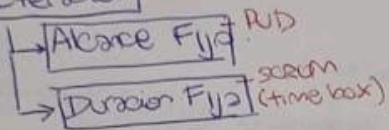 Alcance Fijo PUD
Duracion Fija SCRUM
(time box)